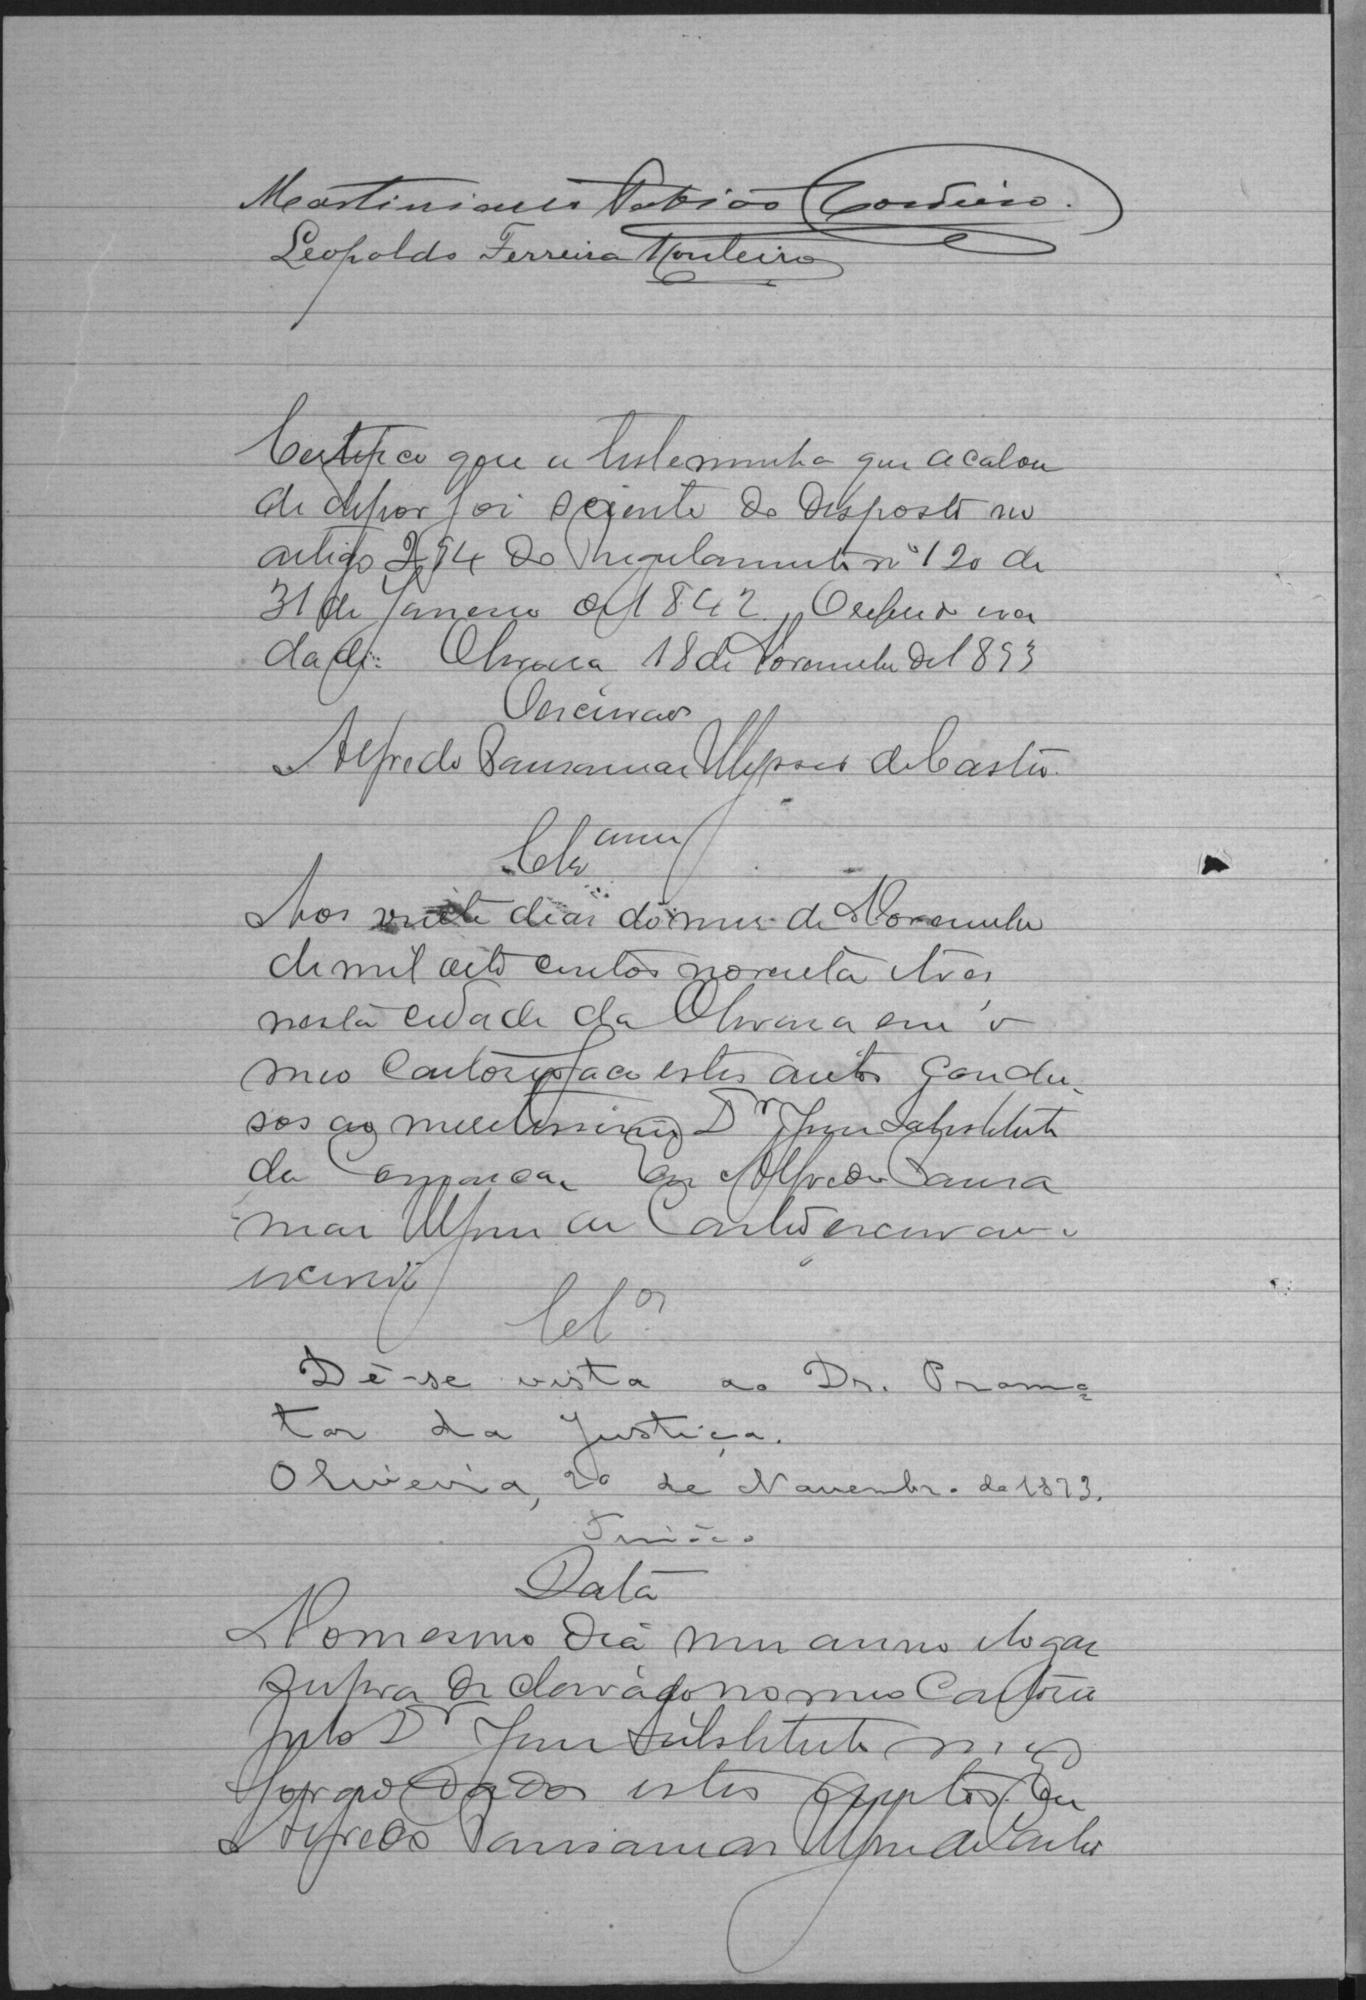 Martiniano Fabião Cordeiro.
Leopoldo Ferreira Monteiro
Certifico que a testemunha que acabou
de depor foi sciente do disposto no
artigo 294 do Regulamento nº 120 de
31 de Janeiro de 1842. O referido é ver
dade. Oliveira 18 de Novembro de 1893
O escrivão
Alfredo Pausamar Ulysses de Castro.
Clsam
Aos vinte dias do mes de Novembro
de mil oito centos noventa e tres
nesta cidade da Oliveira em o
meo Cartorio faco estes autos Conclu
sos ao meretissimo Dr Juis Substituto
da Comarca. Eu Alfredo Pausa
mar Ulysses de Castro escrivão
escrevi
Clos
Dê-se vista ao Dr. Promo
tor da Justiça.
Oliveira, 20 de Novembro de 1893.
Data
No mesmo dia mes anno e logar
supra declarado no meo Cartorio
pelo Dr Juis Substituto
forão dados estes autos. Eu
Alfredo Pausamar Ulysses de Castro